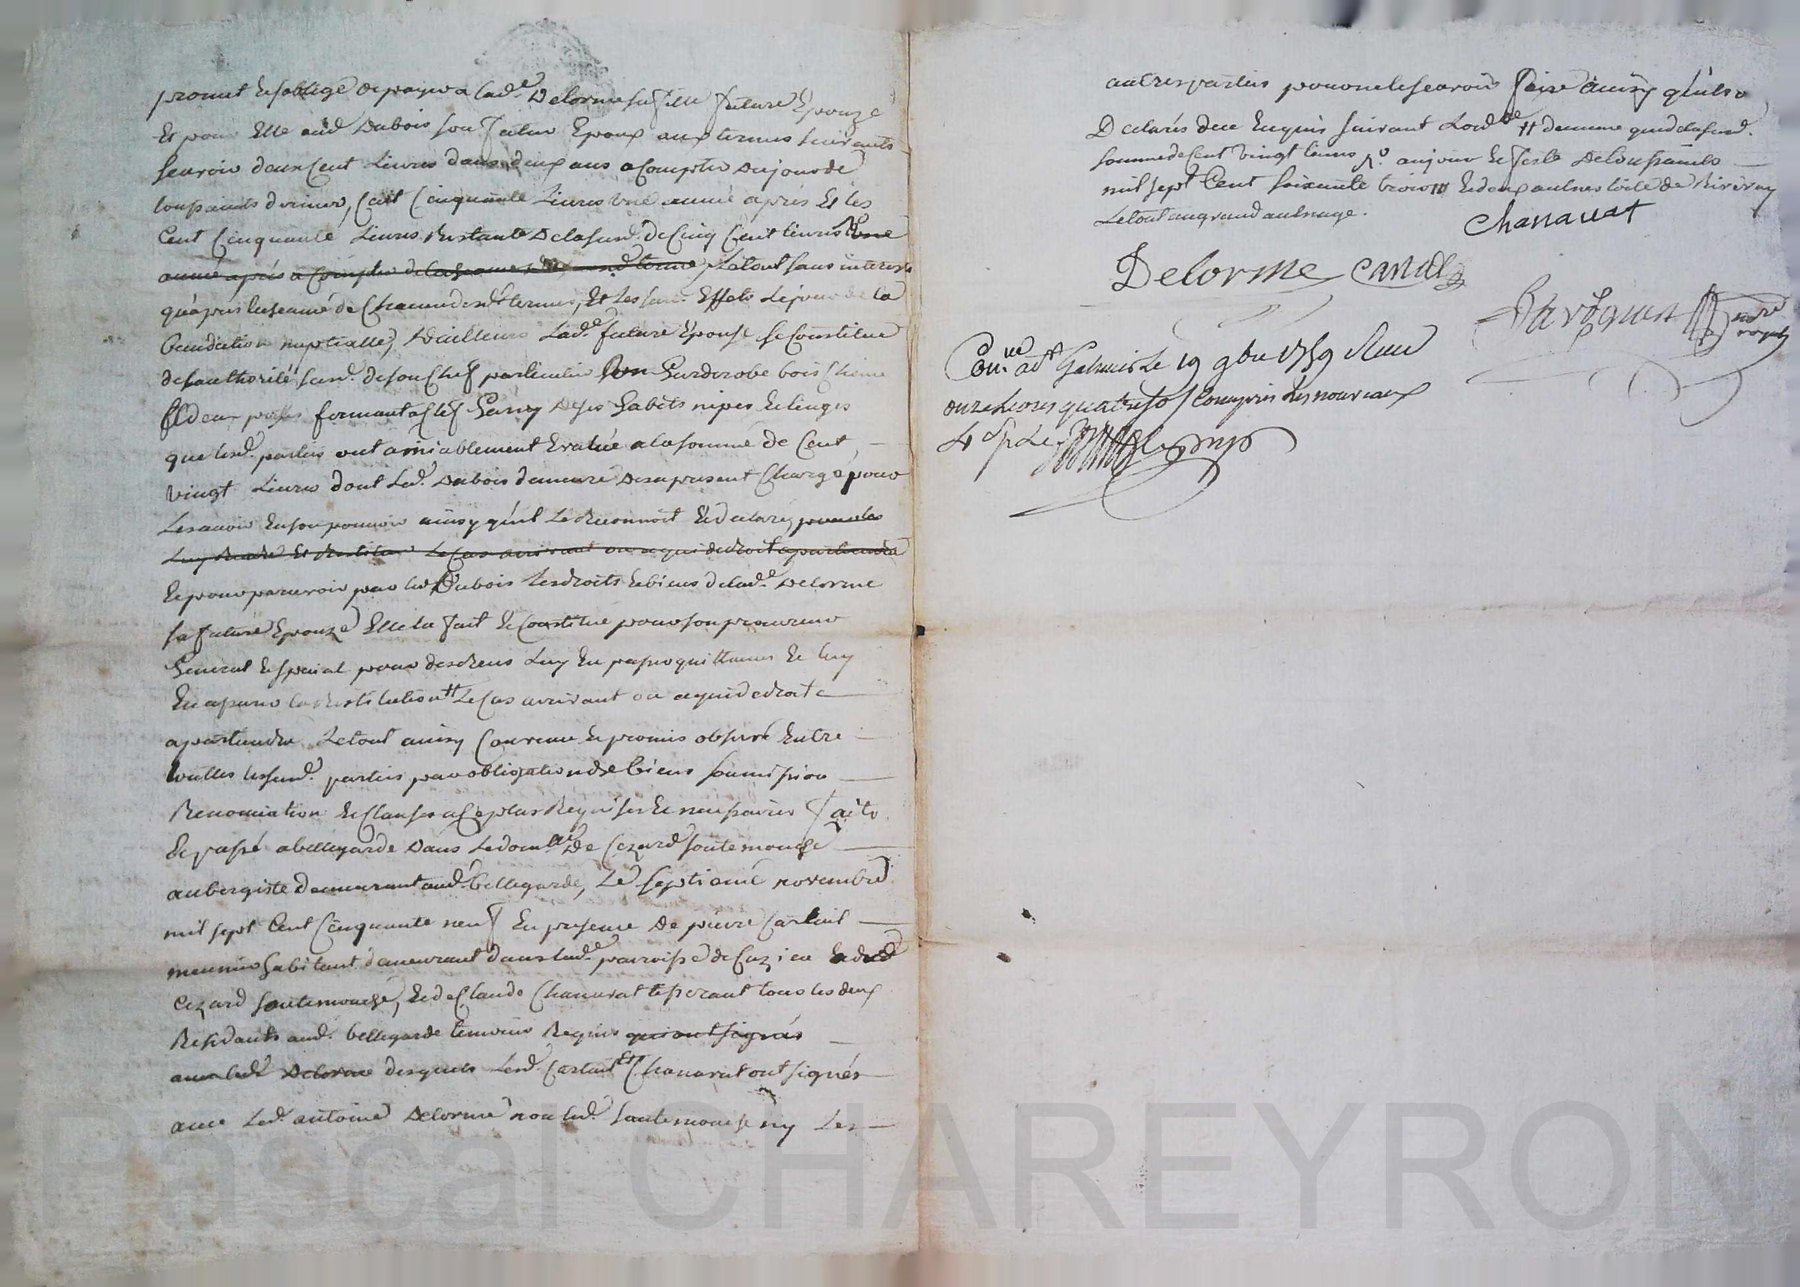 promet & s'oblige de payer a lad.e Delorme sa fille future Epouze
Et pour Elle aud Dubois son futur Epoux aux termes suivants
scavoir deux Cent Livres dans deux ans a Compter du jour de
toussaints dernier, Cent Cinquante Livres une année après Et les
Cent Cinquante Livres Restante de la susd. de Cinq Cent Livres Une
année après a Compter de terme, Le tout sans interests
qu'après lescheance de Chacun desd termes, Et les sus. Effets le jour de la
benediction nuptialle, D'ailleurs Lad.e future Epouse se Constitue
de l'authorité susd. de son Chef particulier Garderobe bois Chene
formant a Clef Garny de ses habits nipes & linges
que lesd. parties ont amiablement Evalué a la somme de Cent
vingt Livres dont Led. Dubois demeure des a present Chargé pour
Les avoir En son pouvoir ainsy qu'il Le Reconnoit & declare, pour les
Luy Rendre Et Restituer Le Cas arrivant ou a qui de droit apartiendra
& pour percevoir par led Dubois Les droits & biens de lad.e Delorme
sa future Epouze Elle la fait & Constitué pour son procureur
General & special pour des Rens Luy En passer quittances & luy
En assurer la Restitution Le Cas arrivant ou a qui de droit
apartiendra Le tout ainsy Convenu & promis observé Entre
touttes lesusd. parties par obligation de biens soumission
Renonciation & Clauses a Ce plus Requises & necessaires faits
& passé a bellegarde Dans Le dom.lle De Cezard Soutemouche
aubergiste demeurant aud. bellegarde, Le septieme novembre
mil sept Cent Cinquante neuf En presence De pierre Cartail
meunier habitant demeurant dans lad.e parroisse de Cuzieu & dud
Cezard Soutemouche, & de Claude Chanavat tisserant tous les deux
Residants aud. bellegarde temoins Requis qui ont signés
avec led Delorme desquels Lesd. Cartail Et Chanavat ont signés
avec Led. antoine Delorme non led. Soutemouche ny Les
autres parties pour ne le scavoir faire ainsy qu'ils ont
Declarés de ce Enquis suivant Lord.ce demeure que de la susd.
somme de Cent vingt aujour & feste de toussaints
mil sept Cent soixante trois & deux autres toile de Riviray
Le tout au grand aulnage.
Chanavat
Delorme Cartail
notre royal
Con.lé a St Galmier Le 19 9bre 1759 Reçu
onze livres quatre sols Compris Les nouveaux
4 s p Le
Pascal CHAREYRON